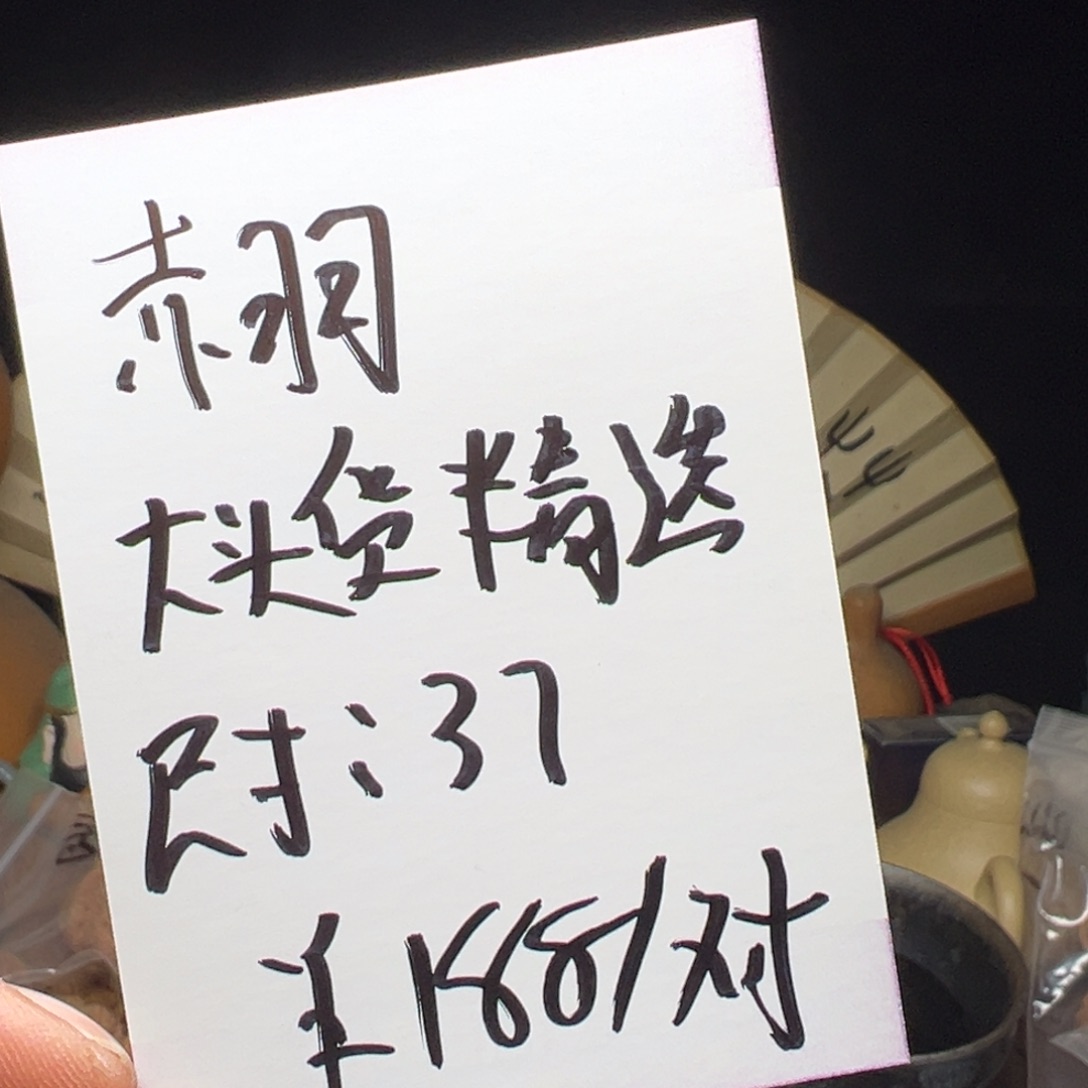 赤羽
大头货精选
尺寸:37
¥188/对